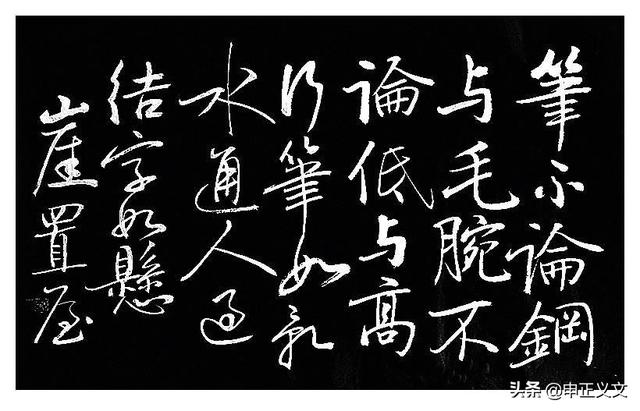 筆不論鋼
与毛腕不
論低与高
行筆如亂
水通人過
結字如懸
崖置屋
头条 @申正义文